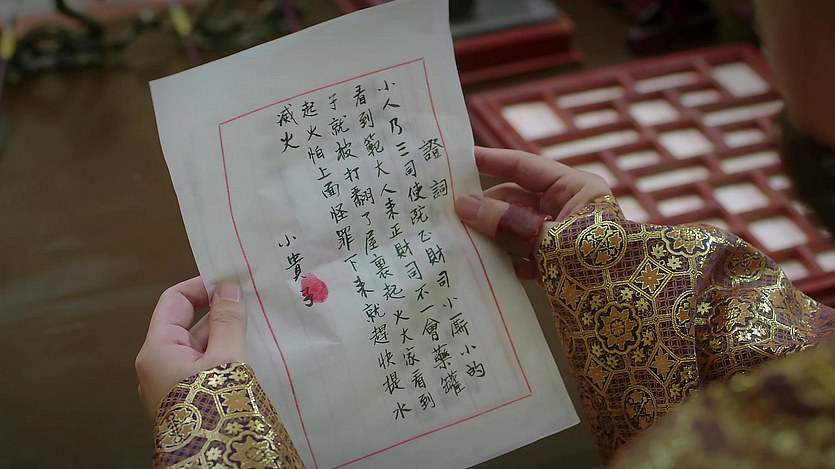 證詞
小人乃三司使院正財司小廝小的
看到範大人来正財司不一會藥罐
子就被打翻了屋裏起火大家看到
起火怕上面怪罪下来就趕快提水
滅火
小貴子